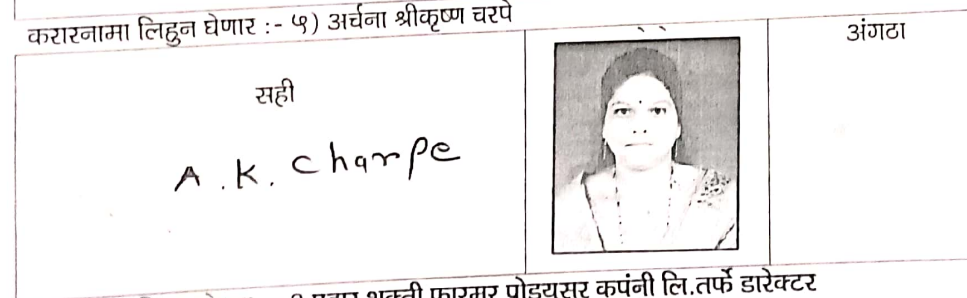 करारनामा लिहुन घेणार :- ५) अर्चना श्रीकृष्ण चरपे
सही
अंगठा
A. K. Charpe
शक्ती फारमर प्रोडयुसर कपंनी लि.तर्फे डारेक्टर